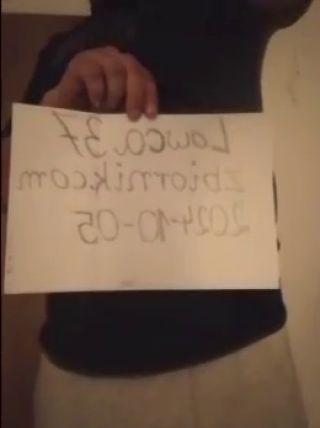 Lowca.37
zbiornik.com
2024-10-05